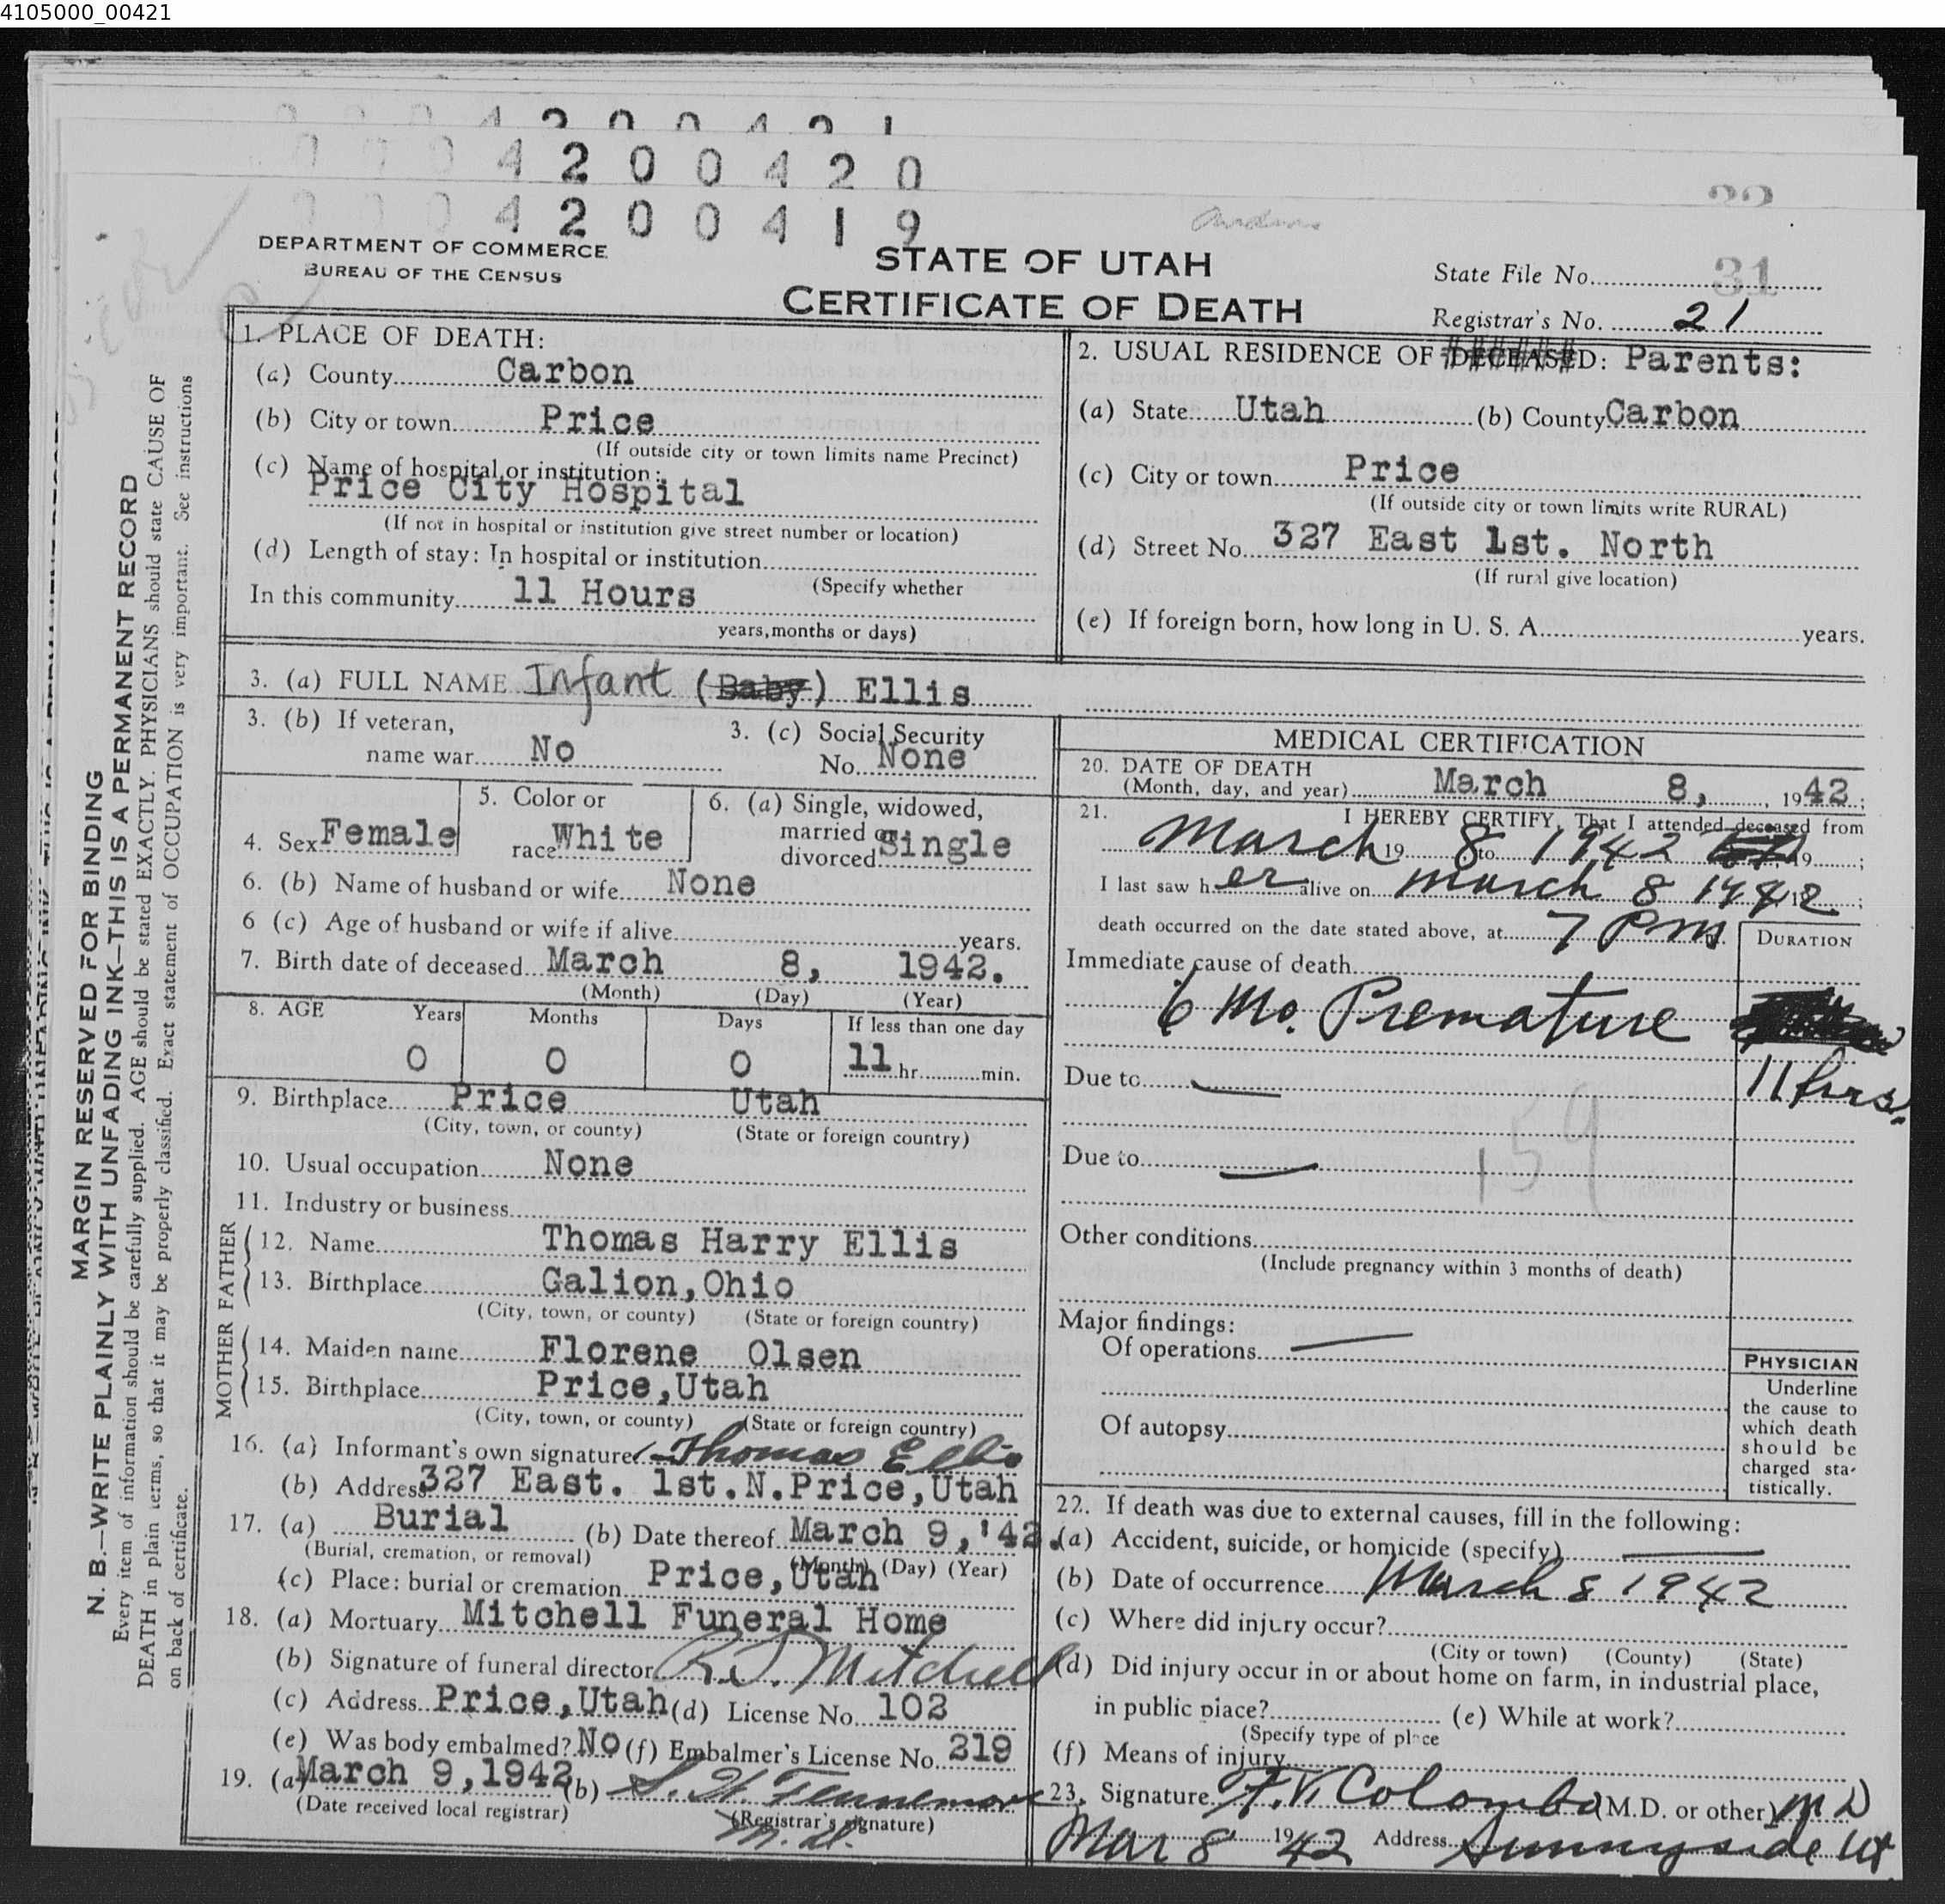 4105000_00421
4 2 0 0 4 2 1
4 2 0 0 4 2 0
4 2 0 0 4 1 9
DEPARTMENT OF COMMERCE
BUREAU OF THE CENSUS
STATE OF UTAH
CERTIFICATE OF DEATH
State File No. 31
Registrar's No. 21
MARGIN RESERVED FOR BINDING
N. B.—WRITE PLAINLY WITH UNFADING INK—THIS IS A PERMANENT RECORD
Every item of information should be carefully supplied. AGE should be stated EXACTLY. PHYSICIANS should state CAUSE OF
DEATH in plain terms, so that it may be properly classified. Exact statement of OCCUPATION is very important. See instructions
on back of certificate.
1. PLACE OF DEATH:
(a) County Carbon
(b) City or town Price
(If outside city or town limits name Precinct)
(c) Name of hospital or institution:
Price City Hospital
(If not in hospital or institution give street number or location)
(d) Length of stay: In hospital or institution
(Specify whether
In this community 11 Hours
years, months or days)
2. USUAL RESIDENCE OF DECEASED: Parents:
(a) State Utah (b) County Carbon
(c) City or town Price
(If outside city or town limits write RURAL)
(d) Street No. 327 East 1st. North
(If rural give location)
(e) If foreign born, how long in U. S. A. years.
3. (a) FULL NAME Infant (Baby) Ellis
3. (b) If veteran,
name war No
3. (c) Social Security
No. None
4. Sex Female
5. Color or
race White
6. (a) Single, widowed,
married or
divorced Single
6. (b) Name of husband or wife None
6 (c) Age of husband or wife if alive years.
7. Birth date of deceased March 8, 1942.
(Month) (Day) (Year)
8. AGE Years Months Days If less than one day
0 0 0 11 hr. min.
9. Birthplace Price Utah
(City, town, or county) (State or foreign country)
10. Usual occupation None
11. Industry or business
FATHER
12. Name Thomas Harry Ellis
13. Birthplace Galion, Ohio
(City, town, or county) (State or foreign country)
MOTHER
14. Maiden name Florene Olsen
15. Birthplace Price, Utah
(City, town, or county) (State or foreign country)
16. (a) Informant's own signature Thomas Ellis
(b) Address 327 East. 1st. N. Price, Utah
17. (a) Burial (b) Date thereof March 9, '42.
(Burial, cremation, or removal) (Month) (Day) (Year)
(c) Place: burial or cremation Price, Utah
18. (a) Mortuary Mitchell Funeral Home
(b) Signature of funeral director Mitchell
(c) Address Price, Utah (d) License No. 102
(e) Was body embalmed? No (f) Embalmer's License No. 219
19. (a) March 9, 1942 (b)
(Date received local registrar) (Registrar's signature)
M.D.
MEDICAL CERTIFICATION
20. DATE OF DEATH
(Month, day, and year) March 8, 1942;
21. I HEREBY CERTIFY, That I attended deceased from
March 19 8 to 1942 19 ;
I last saw her alive on March 8 1942;
death occurred on the date stated above, at 7 P m
DURATION
Immediate cause of death
6 Mo. Premature
11 hrs.
Due to
Due to
154
Other conditions
(Include pregnancy within 3 months of death)
Major findings:
Of operations
Of autopsy
PHYSICIAN
Underline
the cause to
which death
should be
charged sta-
tistically.
22. If death was due to external causes, fill in the following:
(a) Accident, suicide, or homicide (specify)
(b) Date of occurrence March 8 1942
(c) Where did injury occur?
(City or town) (County) (State)
(d) Did injury occur in or about home on farm, in industrial place,
in public place? (e) While at work?
(Specify type of place
(f) Means of injury
23. Signature F. V. Colombo (M.D. or other) M D
Mar 8 1942 Address Sunnyside Ut